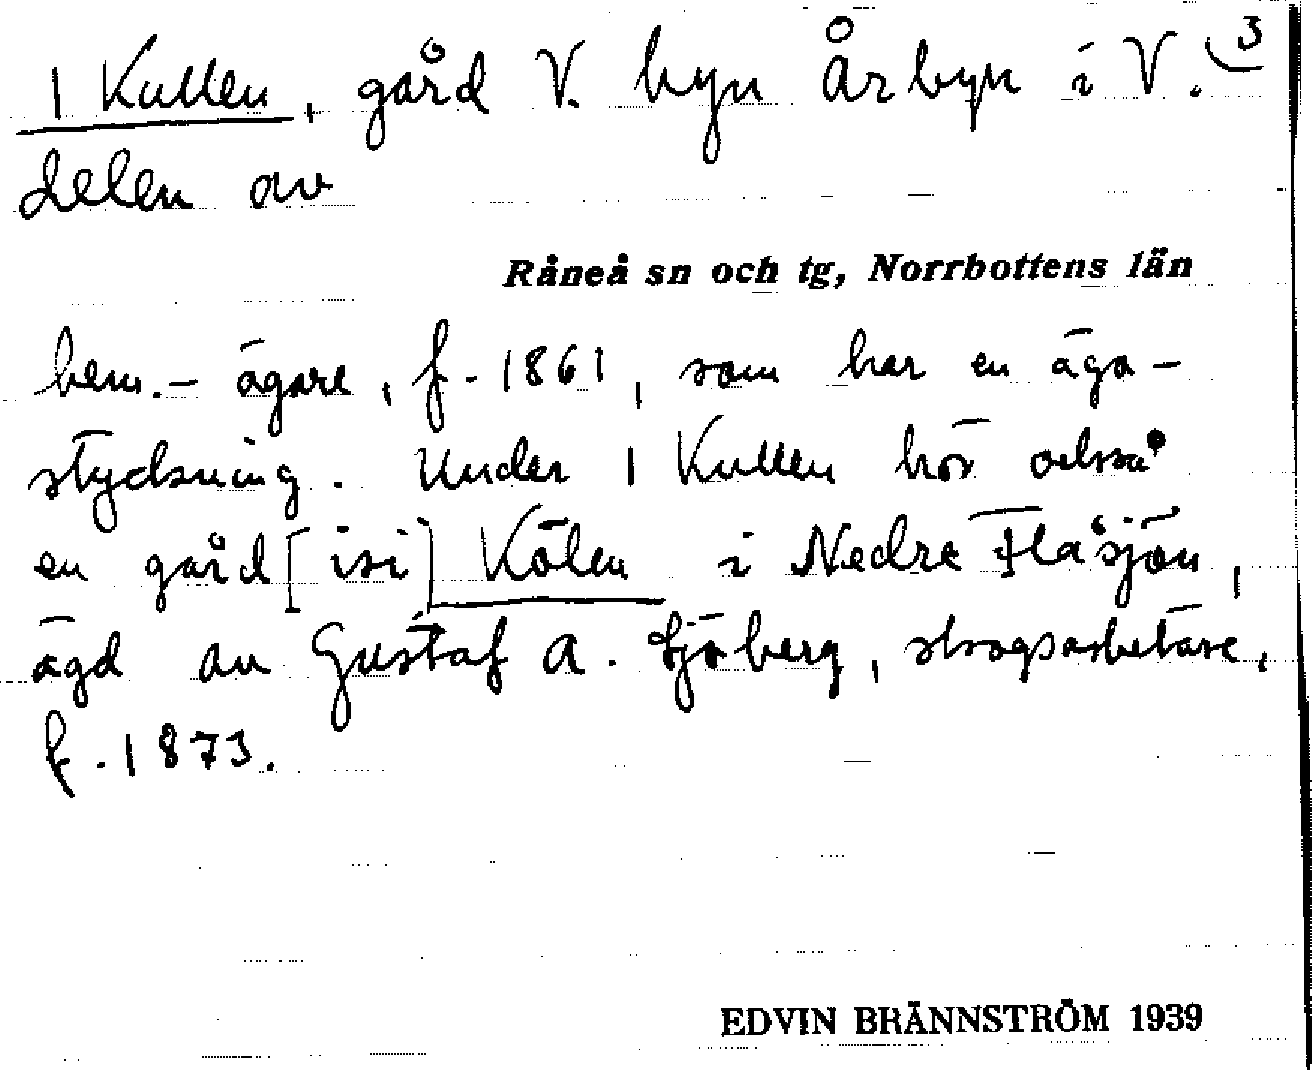 1 Kullen, gård V. byn Årbyn i V. 3
delen av
Råneå sn och tg, Norrbottens län
hem.- ägare, f. 1861, som har en äga-
styckning. Under 1 Kullen hör också
en gård [isi] Kölen i Nedre Flåsjön,
ägd av Gustaf A. Sjöberg, skogsarbetare,
f. 1873.
EDVIN BRÄNNSTRÖM 1939